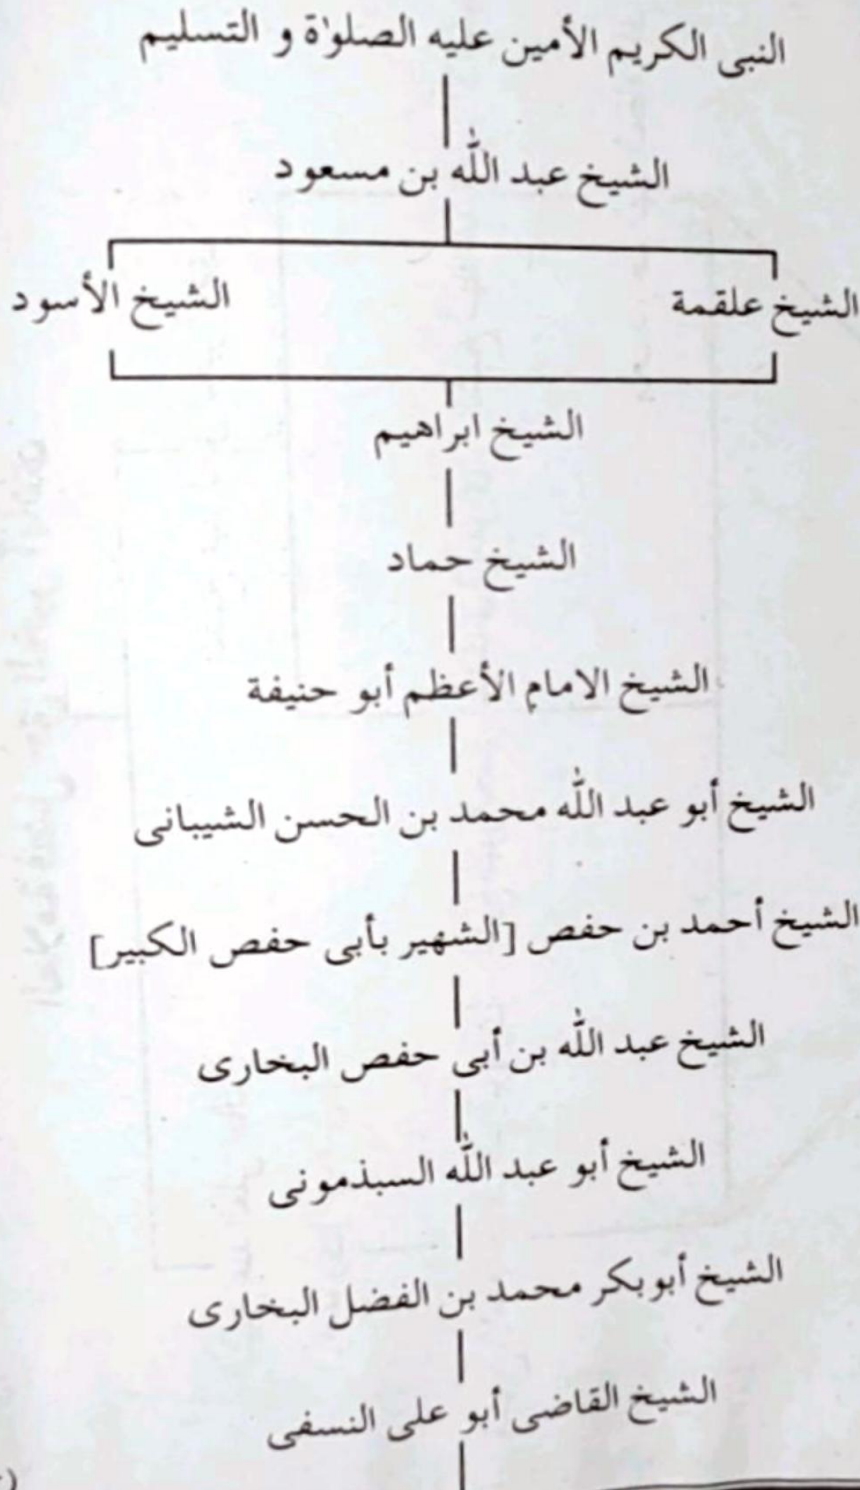 النبى الكريم الأمين عليه الصلوٰة و التسليم
الشيخ عبد الله بن مسعود
الشيخ علقمة الشيخ الأسود
الشيخ ابراهيم
الشيخ حماد
الشيخ الامام الأعظم أبو حنيفة
الشيخ أبو عبد الله محمد بن الحسن الشيبانى
الشيخ أحمد بن حفص [الشهير بأبى حفص الكبير]
الشيخ عبد الله بن أبى حفص البخارى
الشيخ أبو عبد الله السبذمونى
الشيخ أبوبكر محمد بن الفضل البخارى
الشيخ القاضى أبو على النسفى